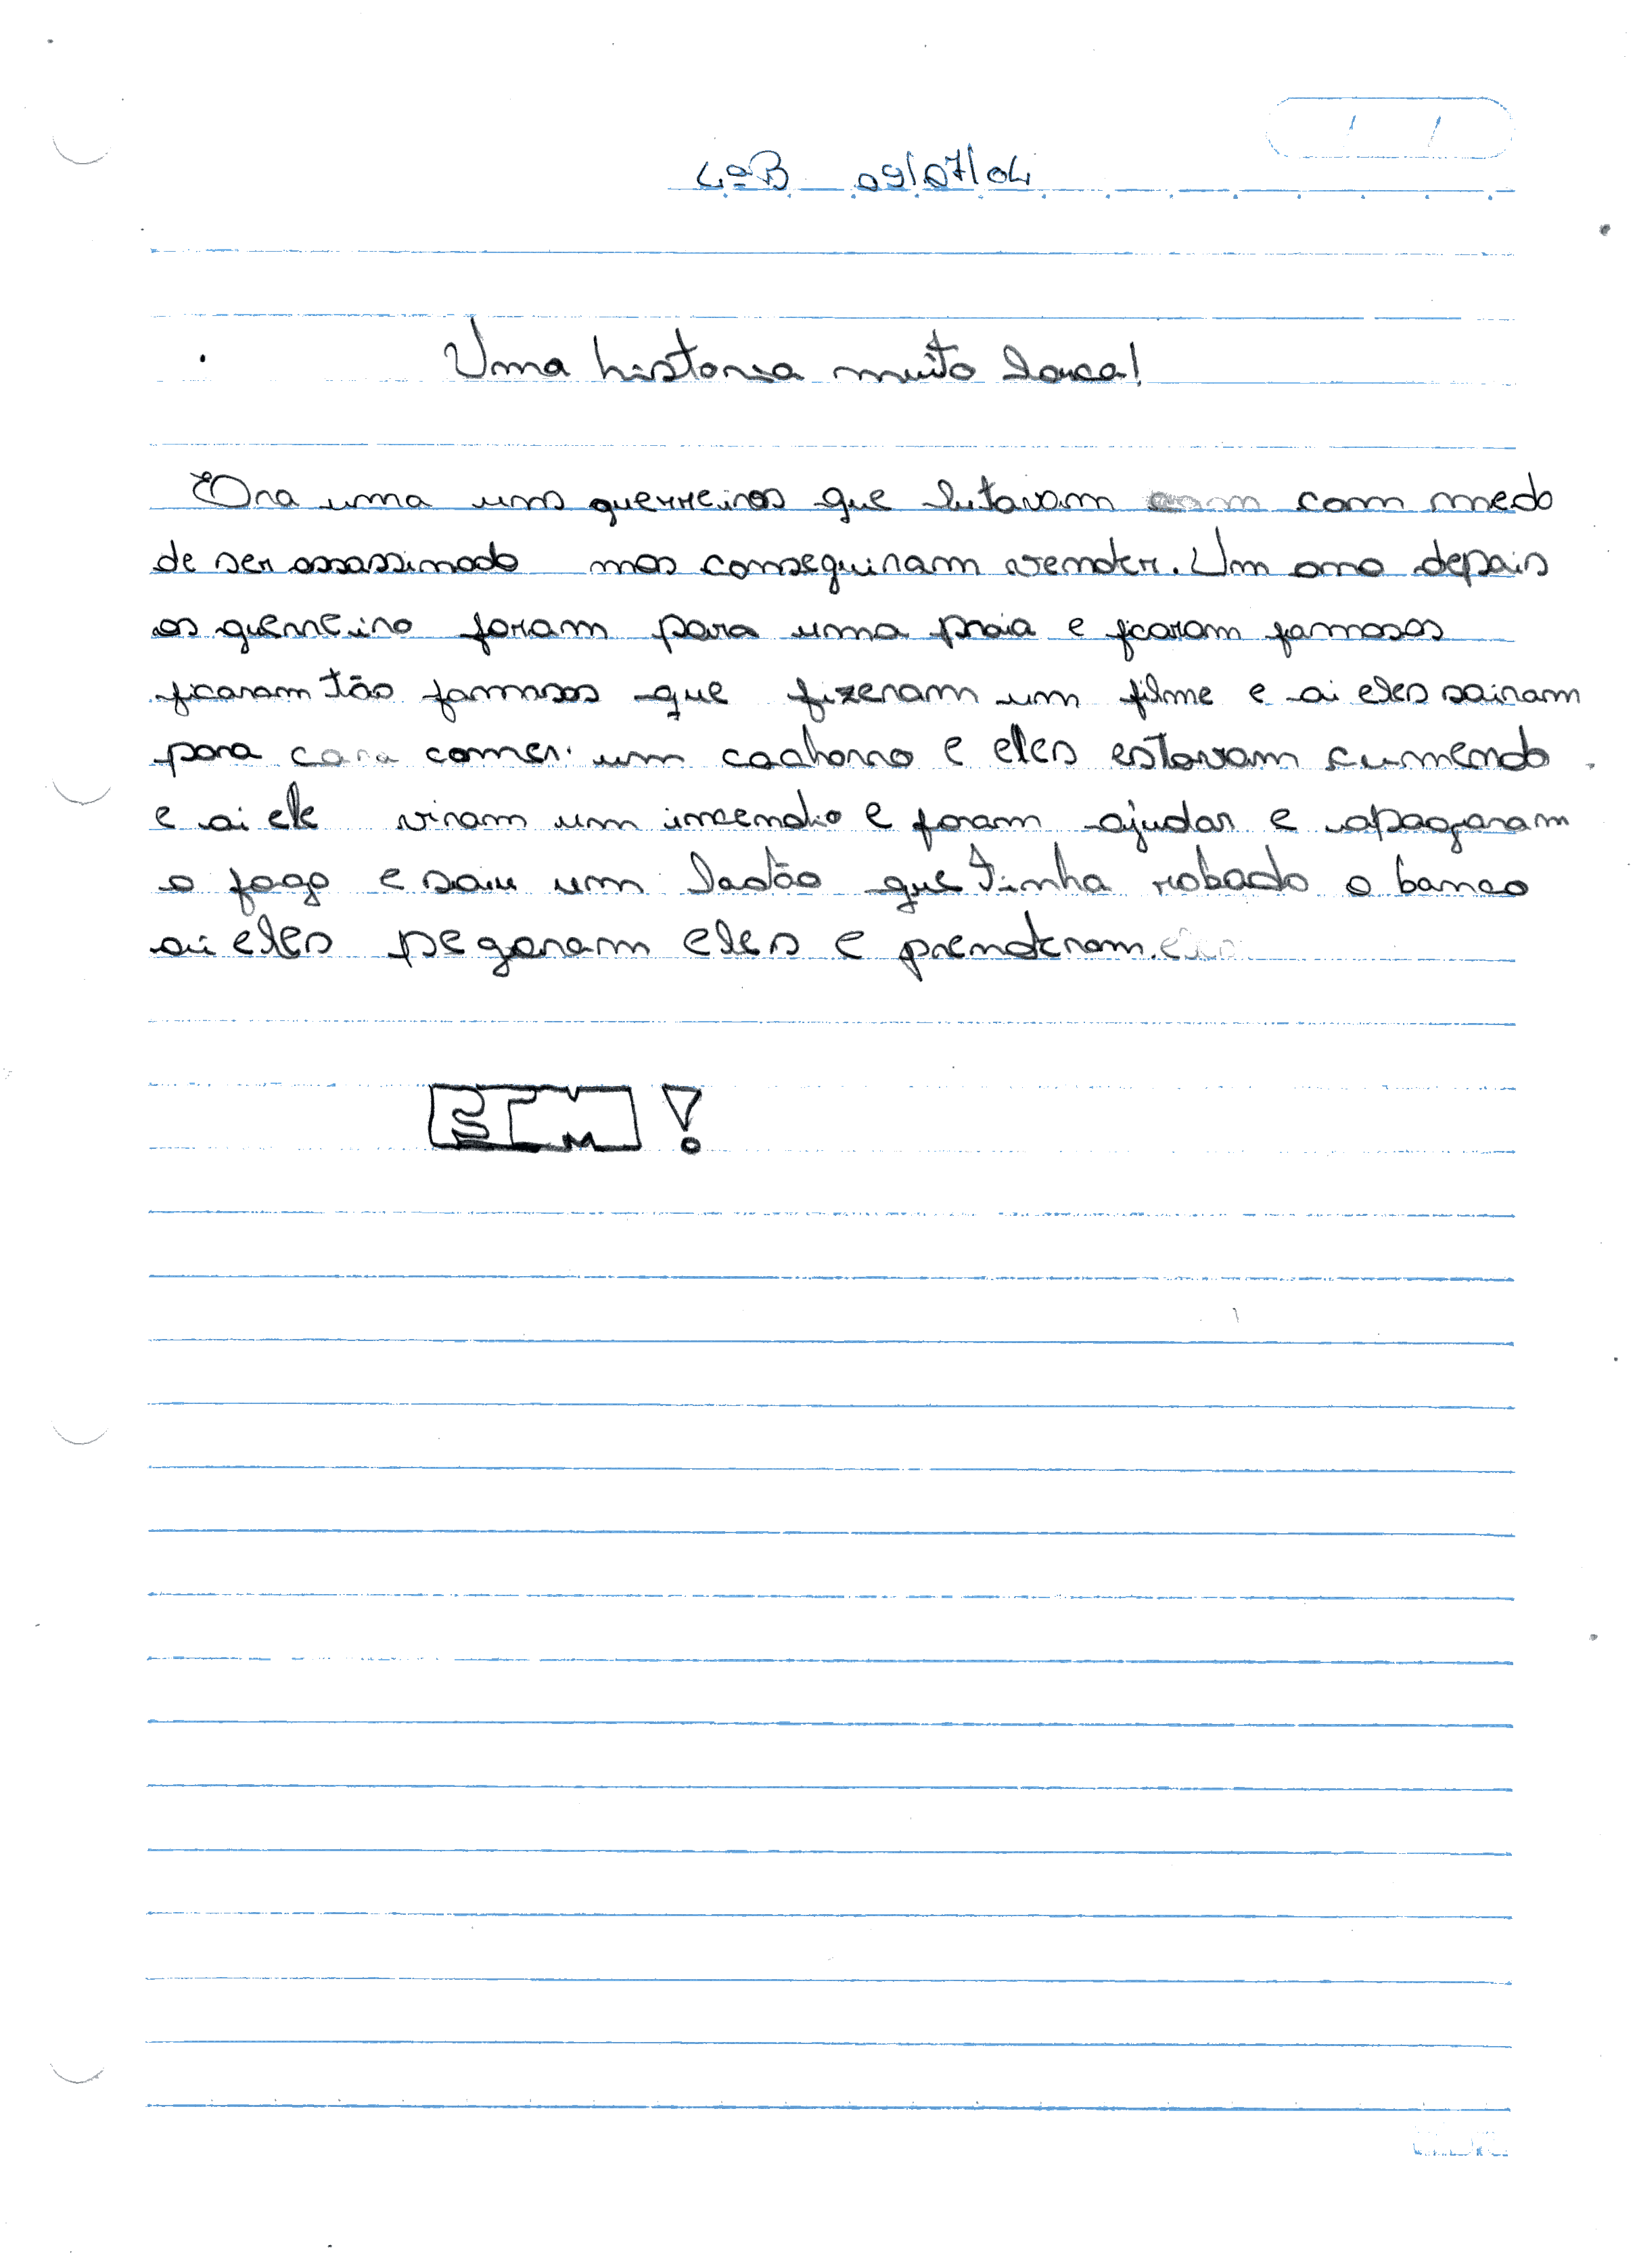 4ªB 09/07/04
Uma historia muito louca!
Era uma uns guerreiros que lutavam com com medo
de ser assassinado mas conseguiram vender. Um ano depais
os guerreiro foram para uma praia e ficaram famosos
ficaram tão famosos que fizeram um filme e ai eles sairam
para cara comer um cachorro e eles estavam cumendo
e ai ele viram um incendio e foram ajudar e apagaram
o fogo e saiu um ladão que tinha robado o banco
ai eles pegaram eles e prenderam. eles
FIM!